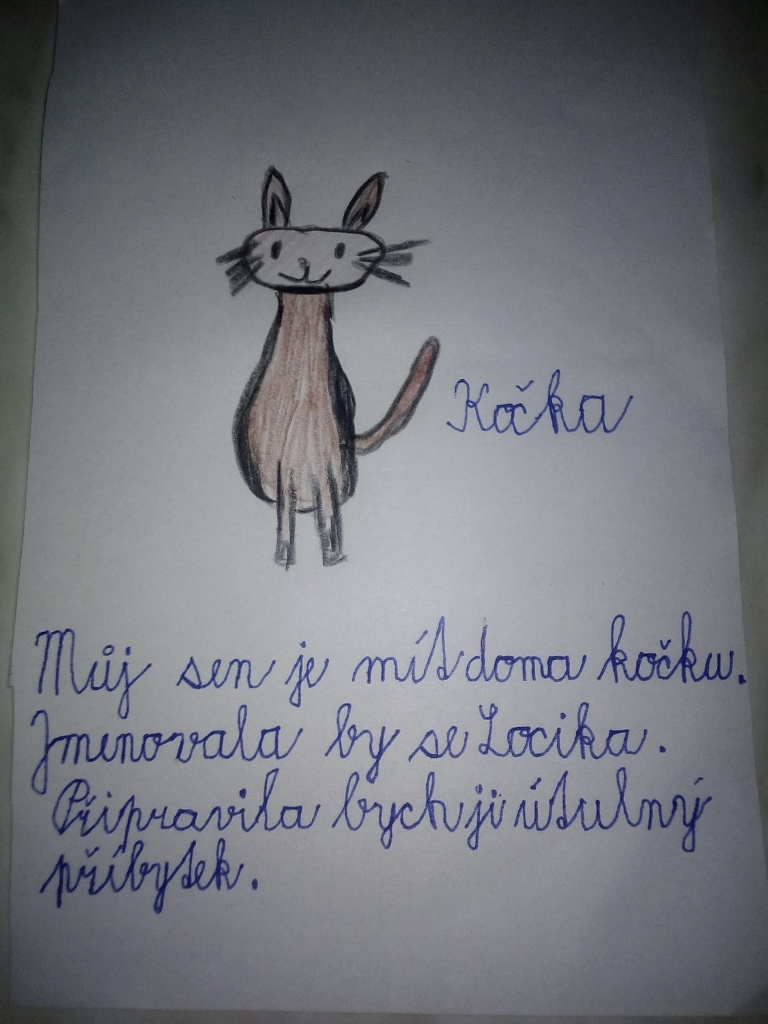 Kočka
Můj sen je mít doma kočku.
Jmenovala by se Locika.
Připravila bych ji útulný
příbytek.